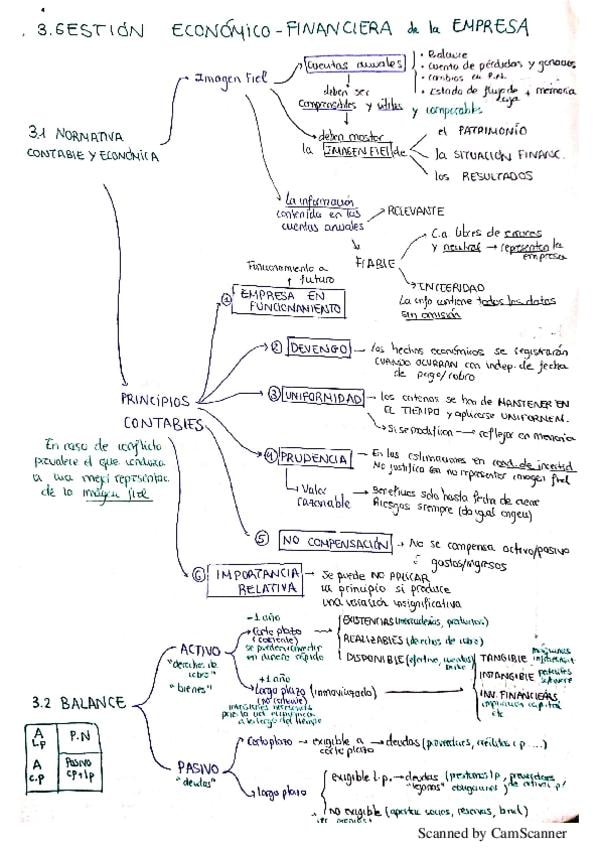 3. GESTIÓN ECONÓMICO-FINANCIERA de la EMPRESA
3.1 NORMATIVA
CONTABLE Y ECONÓMICA
Imagen Fiel
Cuentas anuales
• Balance
• Cuenta de pérdidas y ganancias
• cambios en P.N.
• Estado de flujo de caja + memoria
deben ser
comprensibles y útiles y comparables
deben mostrar
la IMAGEN FIEL de
el PATRIMONIO
la SITUACIÓN FINANC.
los RESULTADOS
La información
contenida en las
cuentas anuales
RELEVANTE
FIABLE
C.a. libres de errores
y neutral → representen la
empresa
INTEGRIDAD
La info contiene todos los datos
sin omisión
PRINCIPIOS
CONTABLES
En caso de conflicto
prevalece el que conduzca
a una mejor representac.
de la imagen fiel
Funcionamiento a
futuro
① EMPRESA EN
FUNCIONAMIENTO
② DEVENGO
los hechos económicos se registrarán
CUANDO OCURRAN con indep. de fecha
de pago/cobro
③ UNIFORMIDAD
los criterios se han de MANTENER EN
EL TIEMPO y aplicarse UNIFORMEM.
Si se modifica → reflejar en memoria
④ PRUDENCIA
En las estimaciones en cond. de incertid
No justifica no representar imagen fiel
Valor
razonable
Beneficios solo hasta fecha de cierre
Riesgos siempre (da igual origen)
⑤ NO COMPENSACIÓN
No se compensa activo/pasivo
gastos/ingresos
⑥ IMPORTANCIA
RELATIVA
Se puede NO APLICAR
un principio si produce
una variación insignificativa
3.2 BALANCE
A
Lp
P.N
A
c.p
Pasivo
cp+lp
ACTIVO
"derechos de
cobro"
"bienes"
-1 año
Corto plazo
(corriente)
se pueden convertir
en dinero rápido
EXISTENCIAS (mercaderías, productos)
REALIZABLES (derechos de cobro)
DISPONIBLE (efectivo, cuentas
+1 año
Largo plazo (inmovilizado)
(no corriente)
a lo largo del tiempo
TANGIBLE
INTANGIBLE
software
INV. FINANCIERAS
etc
PASIVO
"deudas"
Corto plazo → exigible a → deudas (proveedores, créditos c.p. ....)
corto plazo
Largo plazo
exigible l.p. → deudas (préstamos lp, proveedores
no exigible (aportac. socios, reservas,
Scanned by CamScanner